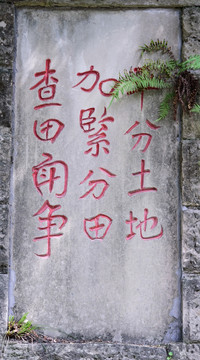 分土地
加緊分田
查田鬥争